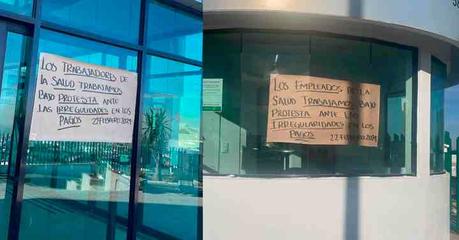 LOS TRABAJADORES DE
LA SALUD TRABAJAMOS
BAJO PROTESTA ANTE
LAS IRREGULIDADES EN LOS
PAGOS 22 FEBRERO 2021
LOS EMPLEADOS DE LA
SALUD TRABAJAMOS BAJO
PROTESTA ANTE LAS
IRREGULARIDADES EN LOS
PAGOS 22 FEBRERO 2021